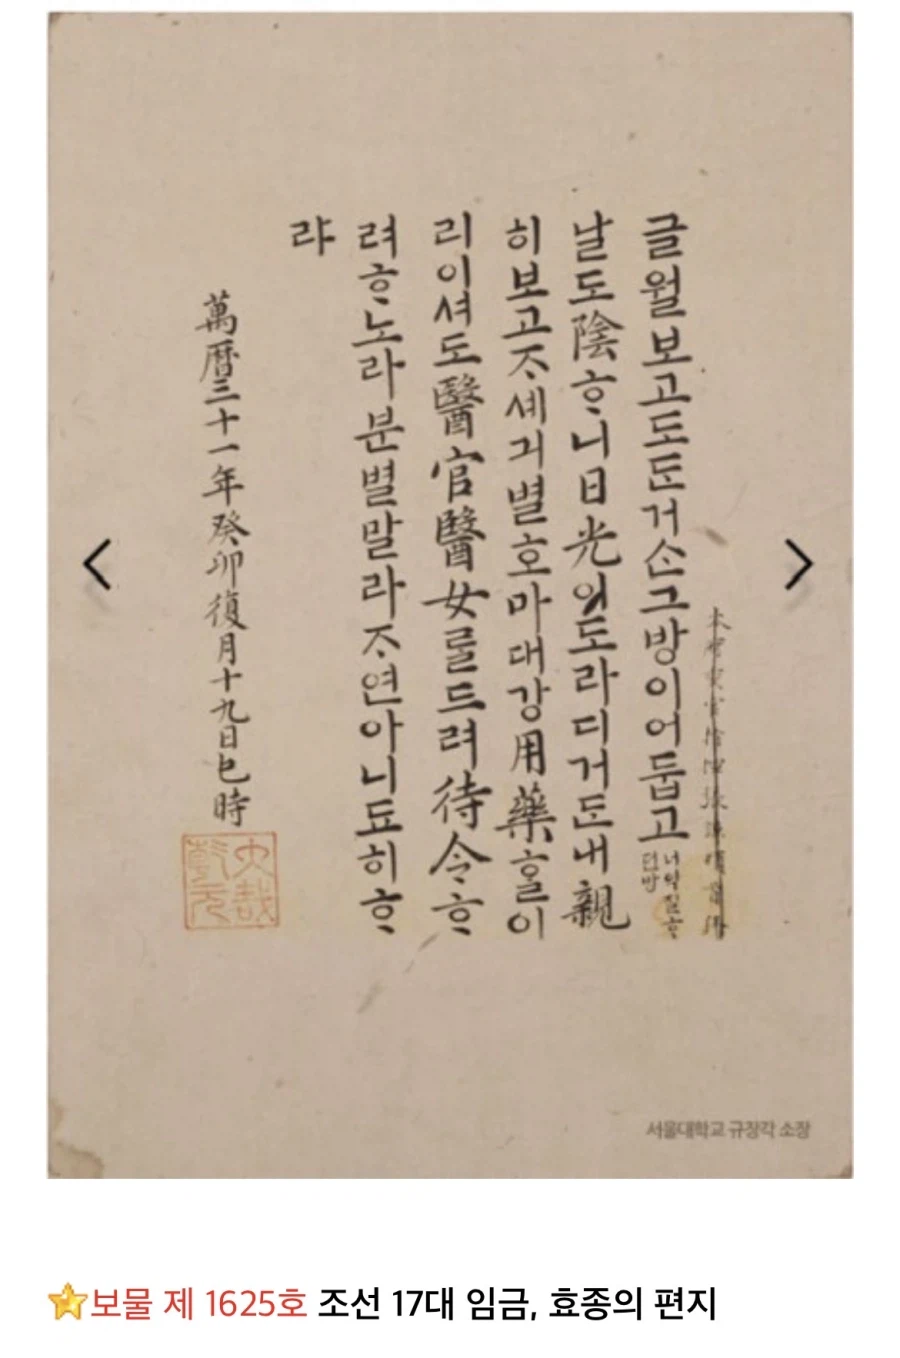 글월보고도ᄃᆞᆫ거ᄉᆞᆫ그방이어둡고
너역질ᄒᆞ
던방
날도陰ᄒᆞ니日光이도라디거ᄃᆞᆫ내親
히보고ᄌᆞ셰긔별호마대강用藥ᄒᆞᆯ이
리이셔도醫官醫女ᄅᆞᆯ드려待令ᄒᆞ
려ᄒᆞ노라분별말라ᄌᆞ연아니됴히ᄒᆞ
랴
萬曆三十一年癸卯復月十九日巳時
서울대학교 규장각 소장
⭐보물 제 1625호 조선 17대 임금, 효종의 편지